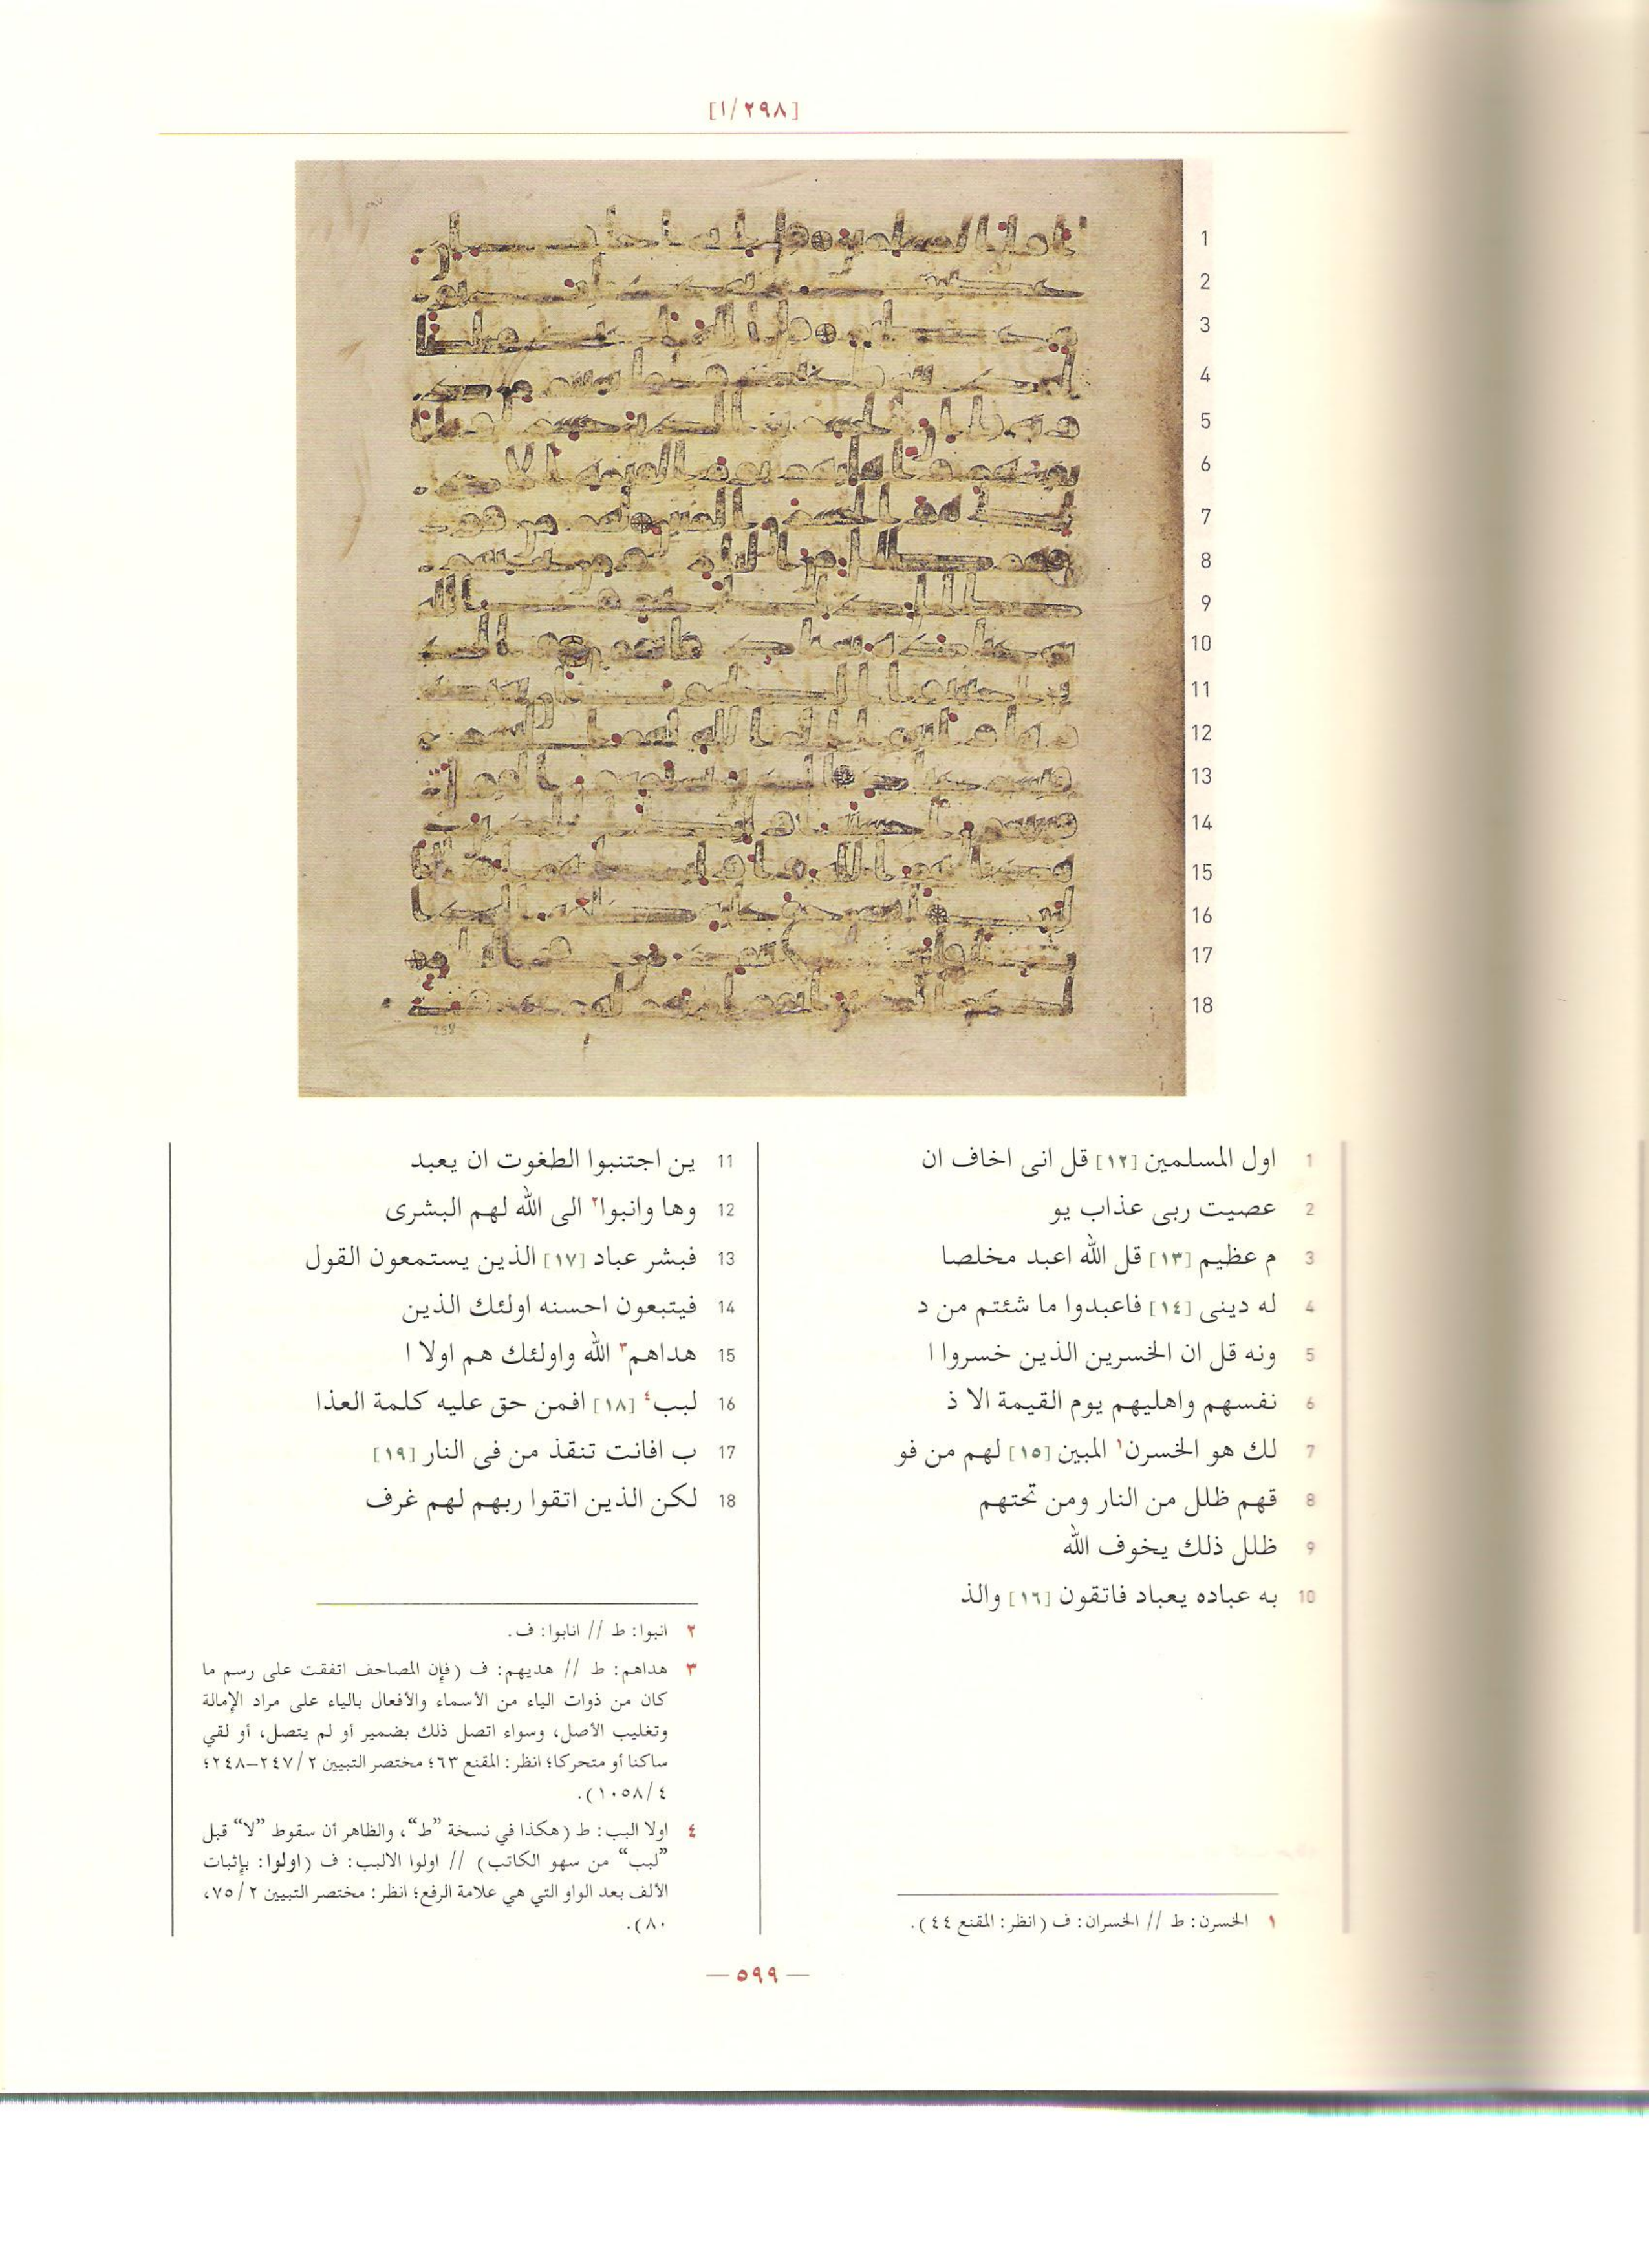 [١/٢٩٨]
1
2
3
4
5
6
7
8
9
10
11
12
13
14
15
16
17
18
298
1 اول المسلمين [١٢] قل انى اخاف ان
2 عصيت ربى عذاب يو
3 م عظيم [١٣] قل الله اعبد مخلصا
4 له دينى [١٤] فاعبدوا ما شئتم من د
5 ونه قل ان الخسرين الذين خسروا ا
6 نفسهم واهليهم يوم القيمة الا ذ
7 لك هو الخسرن١ المبين [١٥] لهم من فو
8 قهم ظلل من النار ومن تحتهم
9 ظلل ذلك يخوف الله
10 به عباده يعباد فاتقون [١٦] والذ
١ الخسرن: ط // الخسران: ف (انظر: المقنع ٤٤).
11 ين اجتنبوا الطغوت ان يعبد
12 وها وانبوا٢ الى الله لهم البشرى
13 فبشر عباد [١٧] الذين يستمعون القول
14 فيتبعون احسنه اولئك الذين
15 هداهم٣ الله واولئك هم اولا ا
16 لبب٤ [١٨] افمن حق عليه كلمة العذا
17 ب افانت تنقذ من فى النار [١٩]
18 لكن الذين اتقوا ربهم لهم غرف
٢ انبوا: ط // انابوا: ف.
٣ هداهم: ط // هديهم: ف (فإن المصاحف اتفقت على رسم ما
كان من ذوات الياء من الأسماء والأفعال بالياء على مراد الإمالة
وتغليب الأصل، وسواء اتصل ذلك بضمير أو لم يتصل، أو لقي
ساكنا أو متحركا؛ انظر: المقنع ٦٣؛ مختصر التبيين ٢/ ٢٤٧–٢٤٨؛
٤/ ١٠٥٨).
٤ اولا البب: ط (هكذا في نسخة ”ط“، والظاهر أن سقوط ”لا“ قبل
”لبب“ من سهو الكاتب) // اولوا الالبب: ف (اولوا: بإثبات
الألف بعد الواو التي هي علامة الرفع؛ انظر: مختصر التبيين ٢/ ٧٥،
٨٠).
— ٥٩٩ —